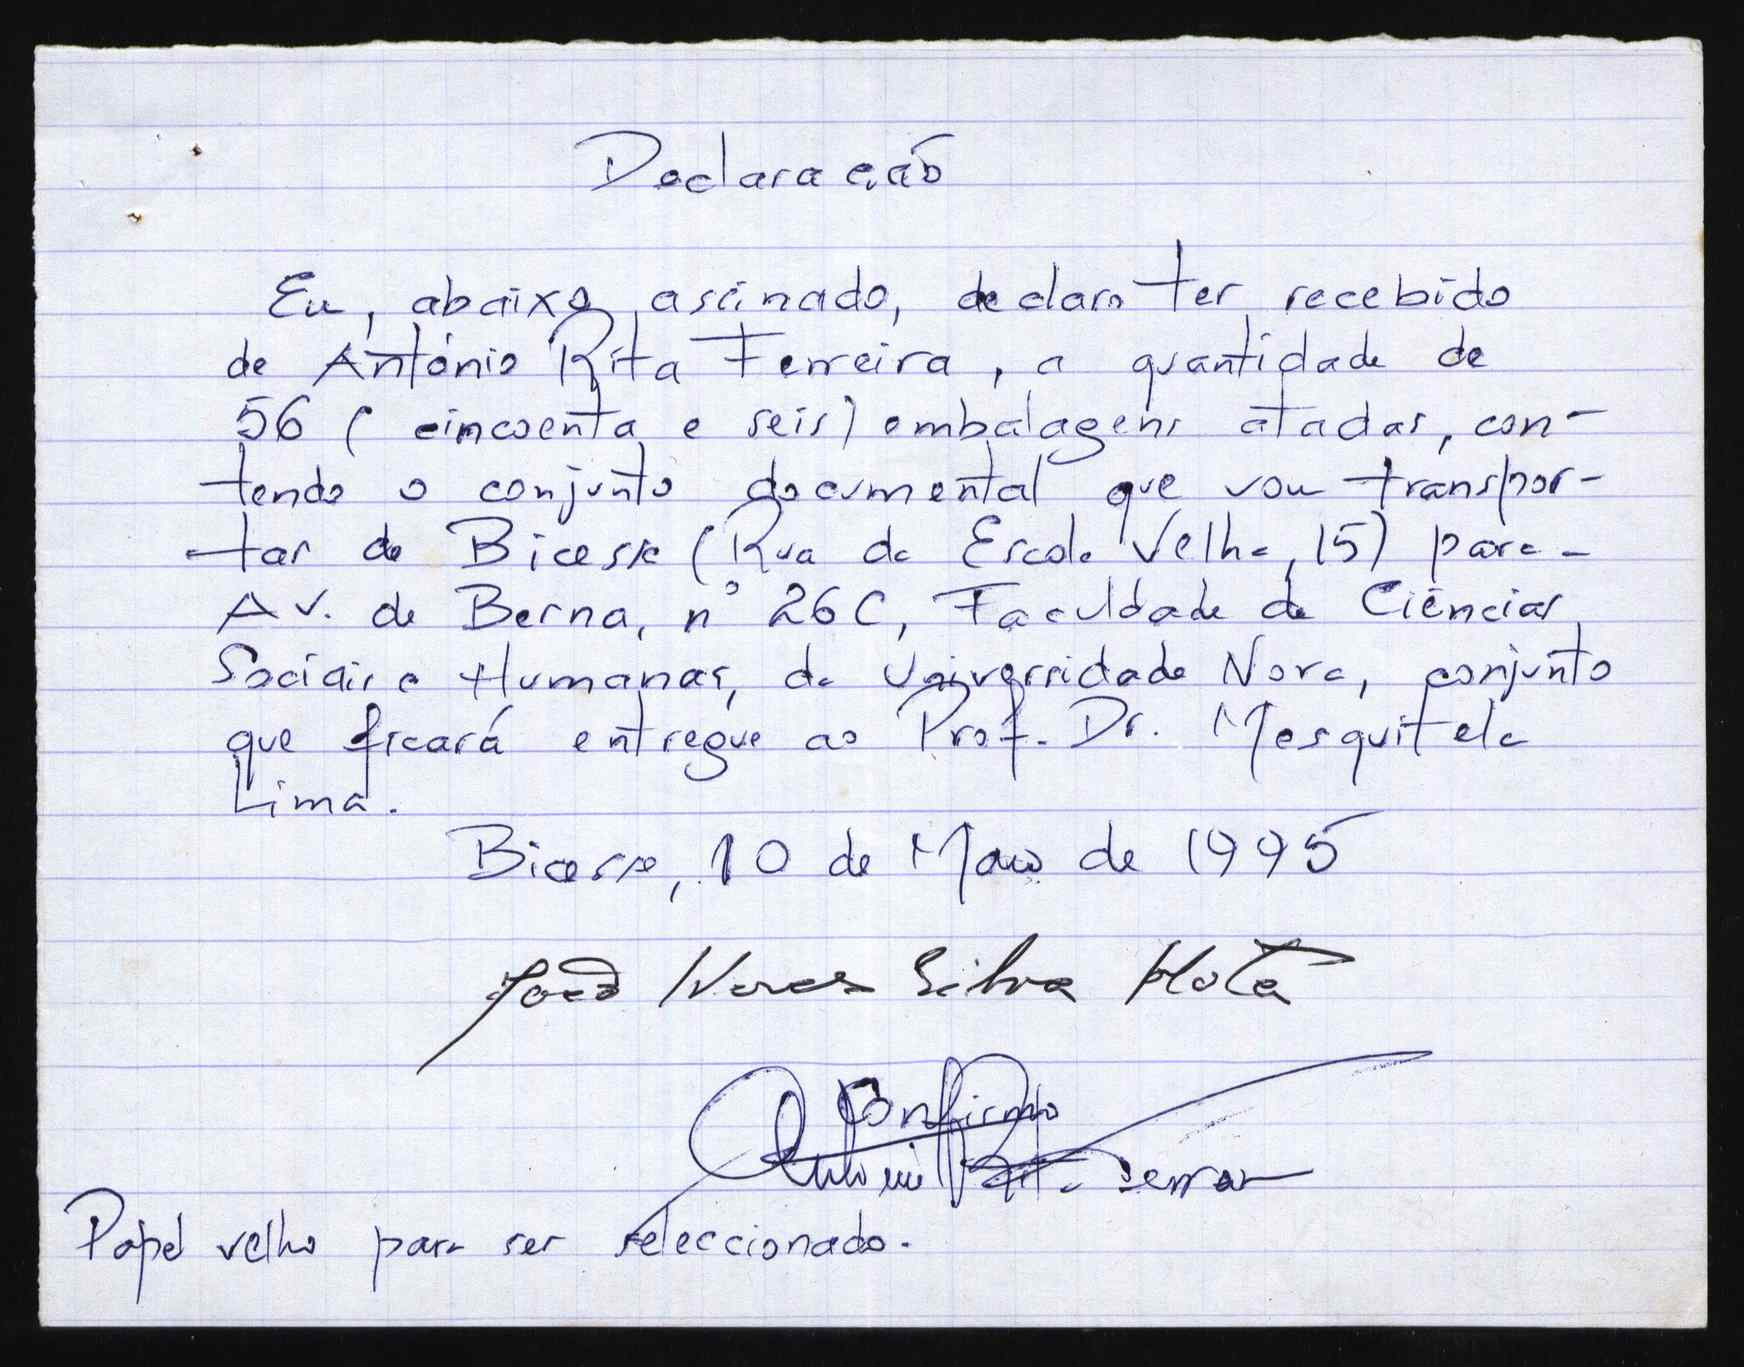 Declaração
Eu, abaixo assinado, declaro ter recebido
de António Rita Ferreira, a quantidade de
56 (cincoenta e seis) embalagens atadas, con-
tendo o conjunto documental que vou transpor-
tar de Bicesse (Rua da Escola Velha, 15) para -
Av. de Berna, nº 26 C, Faculdade de Ciências
Sociais e Humanas, da Universidade Nova, conjunto
que ficará entregue ao Prof. Dr. Mesquitela
Lima.
Bicesse, 10 de Maio de 1995
João Silva Mota
Confirmo
António Rita Ferreira
Papel velho para ser seleccionado.